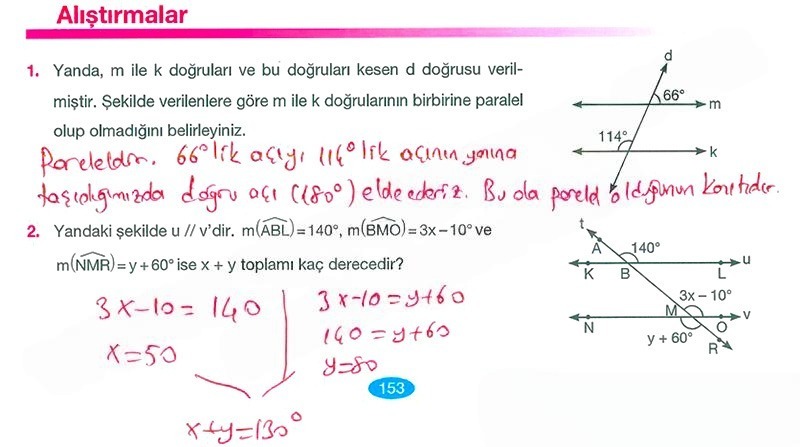 Alıştırmalar
1. Yanda, m ile k doğruları ve bu doğruları kesen d doğrusu veril-
miştir. Şekilde verilenlere göre m ile k doğrularının birbirine paralel
olup olmadığını belirleyiniz.
d
66°
m
114°
k
Pareleldir. 66° lik açıyı 114° lik açının yanına
taşıdığımızda doğru açı (180°) elde ederiz. Bu da pareleld olduğunun kanıtıdır.
2. Yandaki şekilde u // v'dir. m(ABL) = 140°, m(BMO) = 3x – 10° ve
m(NMR) = y + 60° ise x + y toplamı kaç derecedir?
t
A
140°
u
K B L
3x – 10°
M
v
N O
y + 60°
R
3x-10 = 140
x = 50
3x-10 = y+60
140 = y+60
y=80
153
x+y=130°